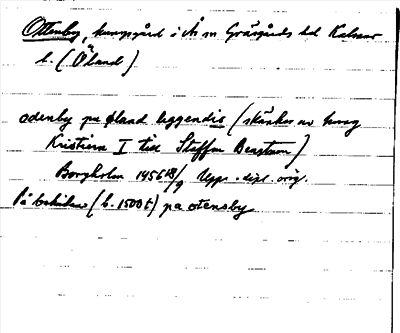 Ottenby, kungsgård i Ås sn Gräsgårds hd Kalmar
l. (Öland)
odenby pa Øland liggendis (skänker av kung
Kristiern I till Staffan Bengtsson)
Borgholm 1456 18/9 Upps. dipl. orig.
På baksidan (b. 1500 t) pa otensby